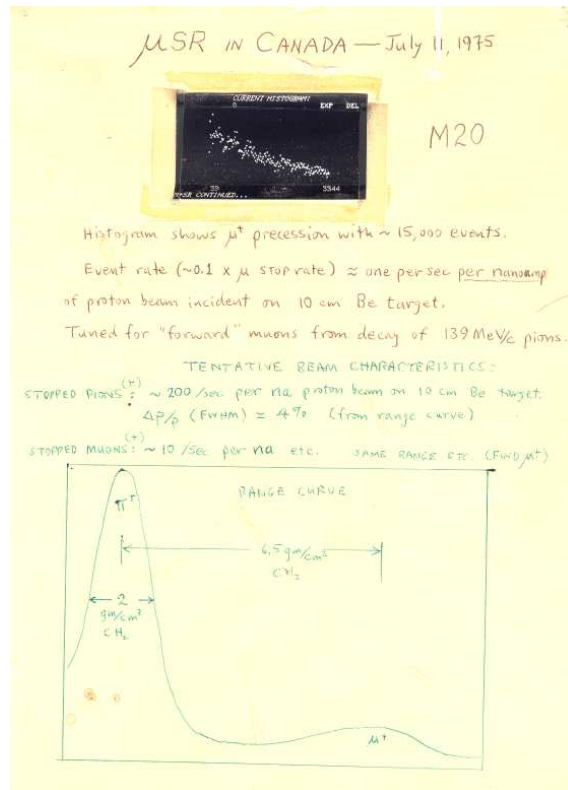 μSR IN CANADA — July 11, 1975
CURRENT HISTOGRAM:
0 EXP DEL
M20
39 3344
CONTINUED...
Histogram shows μ⁺ precession with ~ 15,000 events.
Event rate (~0.1 x μ STOP rate) ≈ one per sec per nanoamp
of proton beam incident on 10 cm Be target.
Tuned for "forward" muons from decay of 139 MeV/c pions.
TENTATIVE BEAM CHARACTERISTICS:
STOPPED PIONS (+): ~ 200/sec per na proton beam on 10 cm Be target.
ΔP/p (FWHM) ≃ 4% (from range curve)
STOPPED MUONS (+): ~ 10/sec per na etc. SAME RANGE ETC. (FWD μ⁺)
RANGE CURVE
π⁺
6.5 gm/cm²
CH₂
2
gm/cm²
CH₂
μ⁺